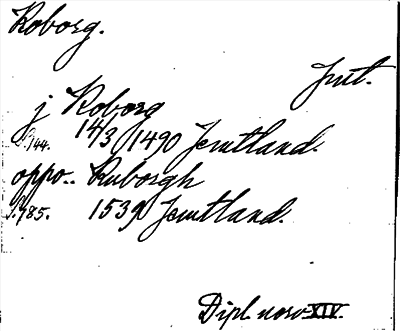 Roborg.
Jmt.
j Roborg
S.144. 14/3 1490 Jemtland.
oppo.. Ruborgh
S.785. 1539 Jemtland.
Dipl. norv. XIV.